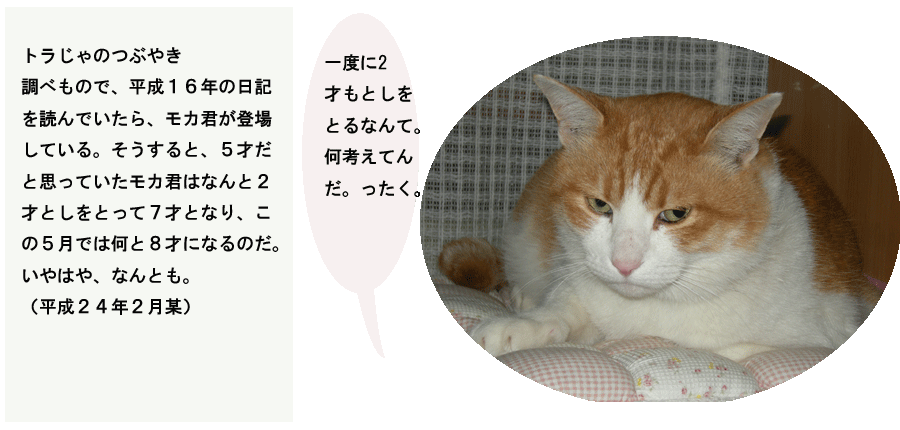 トラじゃのつぶやき
調べもので、平成１６年の日記
を読んでいたら、モカ君が登場
している。そうすると、５才だ
と思っていたモカ君はなんと２
才としをとって７才となり、こ
の５月では何と８才になるのだ。
いやはや、なんとも。
（平成２４年２月某）
一度に2
才もとしを
とるなんて。
何考えてん
だ。ったく。